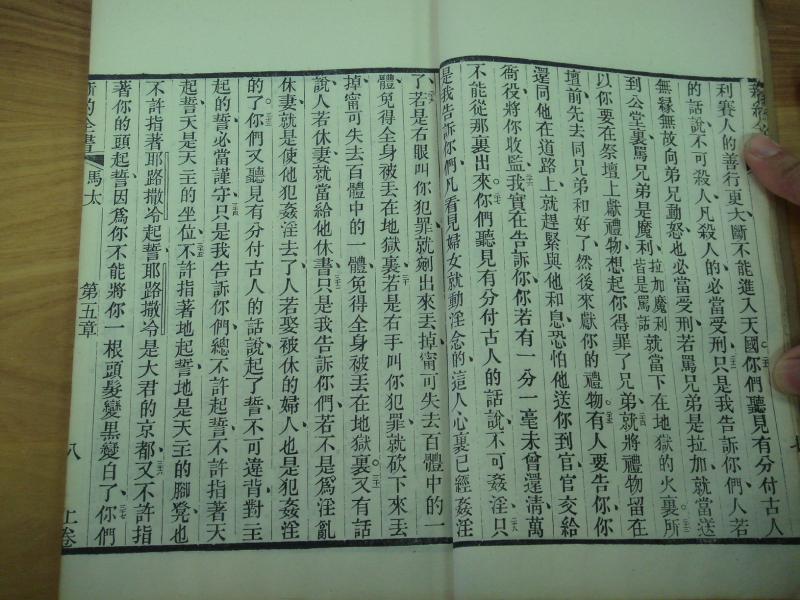 利賽人的善行更大斷不能進入天國。你們聽見有分付古人
的話說不可殺人凡殺人的必當受刑只是我告訴你們人若
無縁無故向弟兄動怒也必當受刑若罵兄弟是拉加就當送
到公堂裏罵兄弟是魔利拉加魔利皆是罵話就當下在地獄的火裏所
以你要在祭壇上獻禮物想起你得罪了兄弟就將禮物留在
壇前先去同兄弟和好了然後來獻你的禮物。有人要告你你
還同他在道路上就趕緊與他和息恐怕他送你到官官交給
衙役將你收監我實在告訴你你若有一分一毫未曾還清萬
不能從那裏出來。你們聽見有分付古人的話說不可姦淫只
是我告訴你們凡看見婦女就動淫念的這人心裏已經姦淫
了若是右眼叫你犯罪就剜出來丟掉甯可失去百體中的一
體免得全身被丟在地獄裏若是右手叫你犯罪就砍下來丟
掉甯可失去百體中的一體免得全身被丟在地獄裏。又有話
說人若休妻就當給他休書只是我告訴你們若不是爲淫亂
休妻就是使他犯姦淫去了人若娶被休的婦人也是犯姦淫
的了。你們又聽見有分付古人的話說起了誓不可違背對主
起的誓必當謹守只是我告訴你們總不許起誓不許指著天
起誓天是天主的坐位不許指著地起誓地是天主的腳凳也
不許指著耶路撒冷起誓耶路撒冷是大君的京都又不許指
著你的頭起誓因爲你不能將你一根頭髮變黑變白了你們
新約全書 馬太 第五章 八 上卷